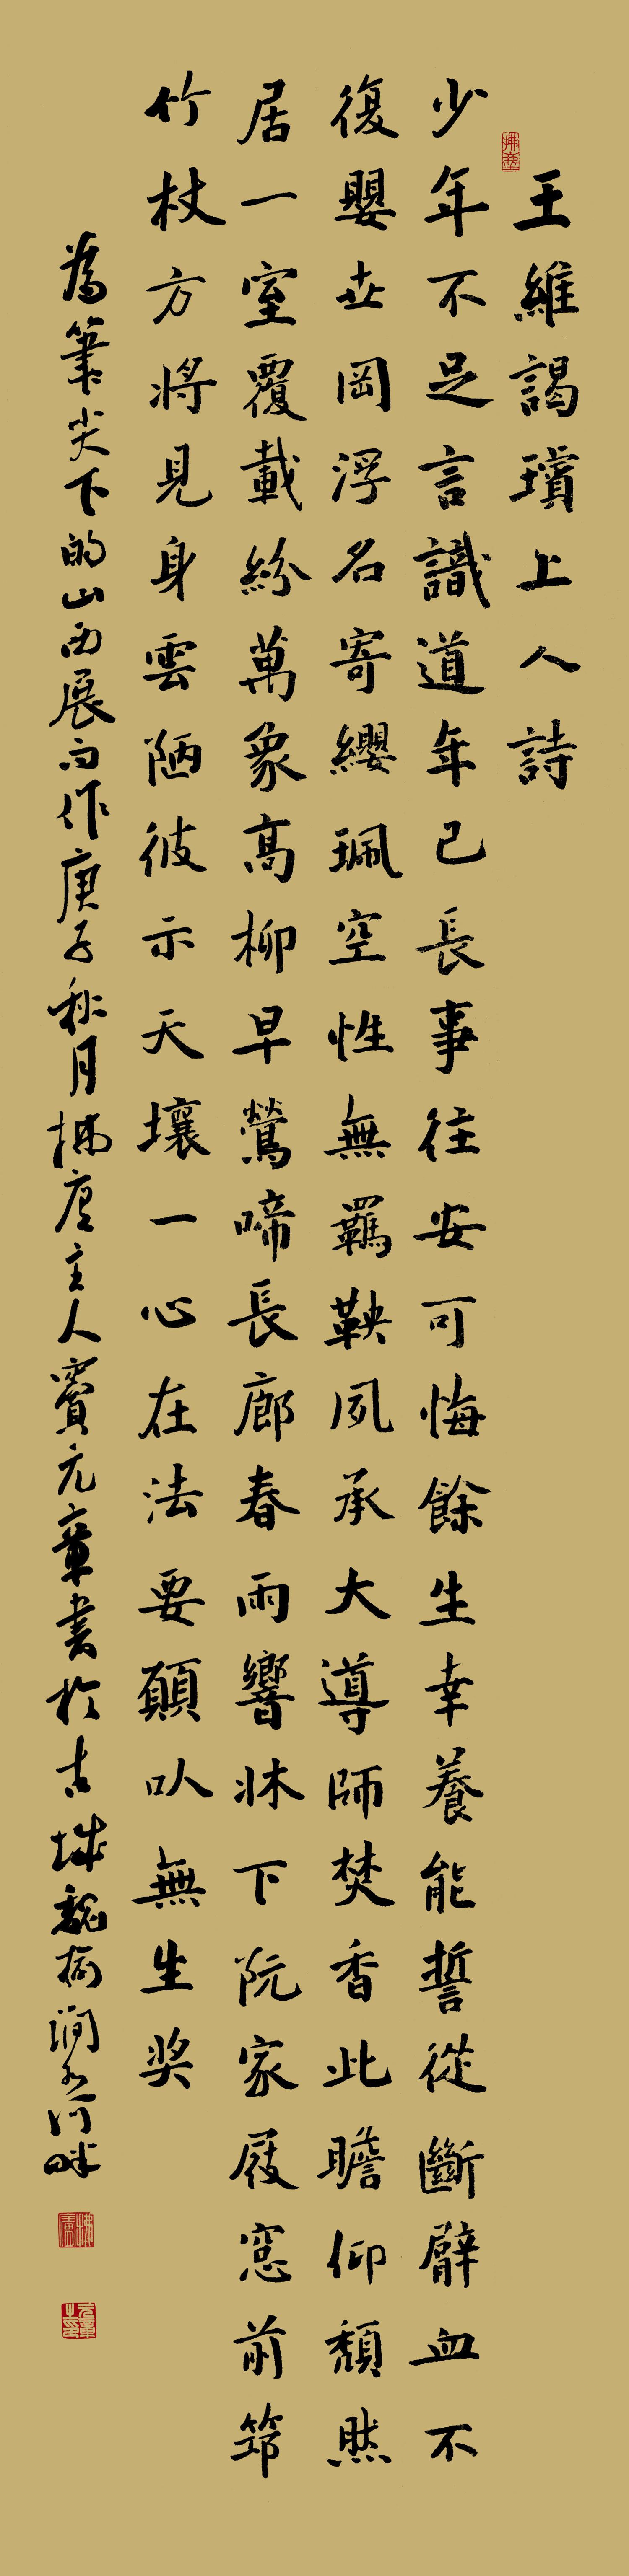 王維謁璿上人詩
少年不足言識道年已長事往安可悔餘生幸養能誓從斷臂血不
復嬰世岡浮名寄纓珮空性無羈鞅夙承大導師焚香此瞻仰頹然
居一室覆載紛萬象高柳早鶯啼長廊春雨響牀下阮家屐窓前筇
竹杖方將見身雲陋彼示天壤一心在法要願以無生奖
為筆尖下的山西展而作庚子秋月拂塵主人竇元章書於古城魏榆澗河畔